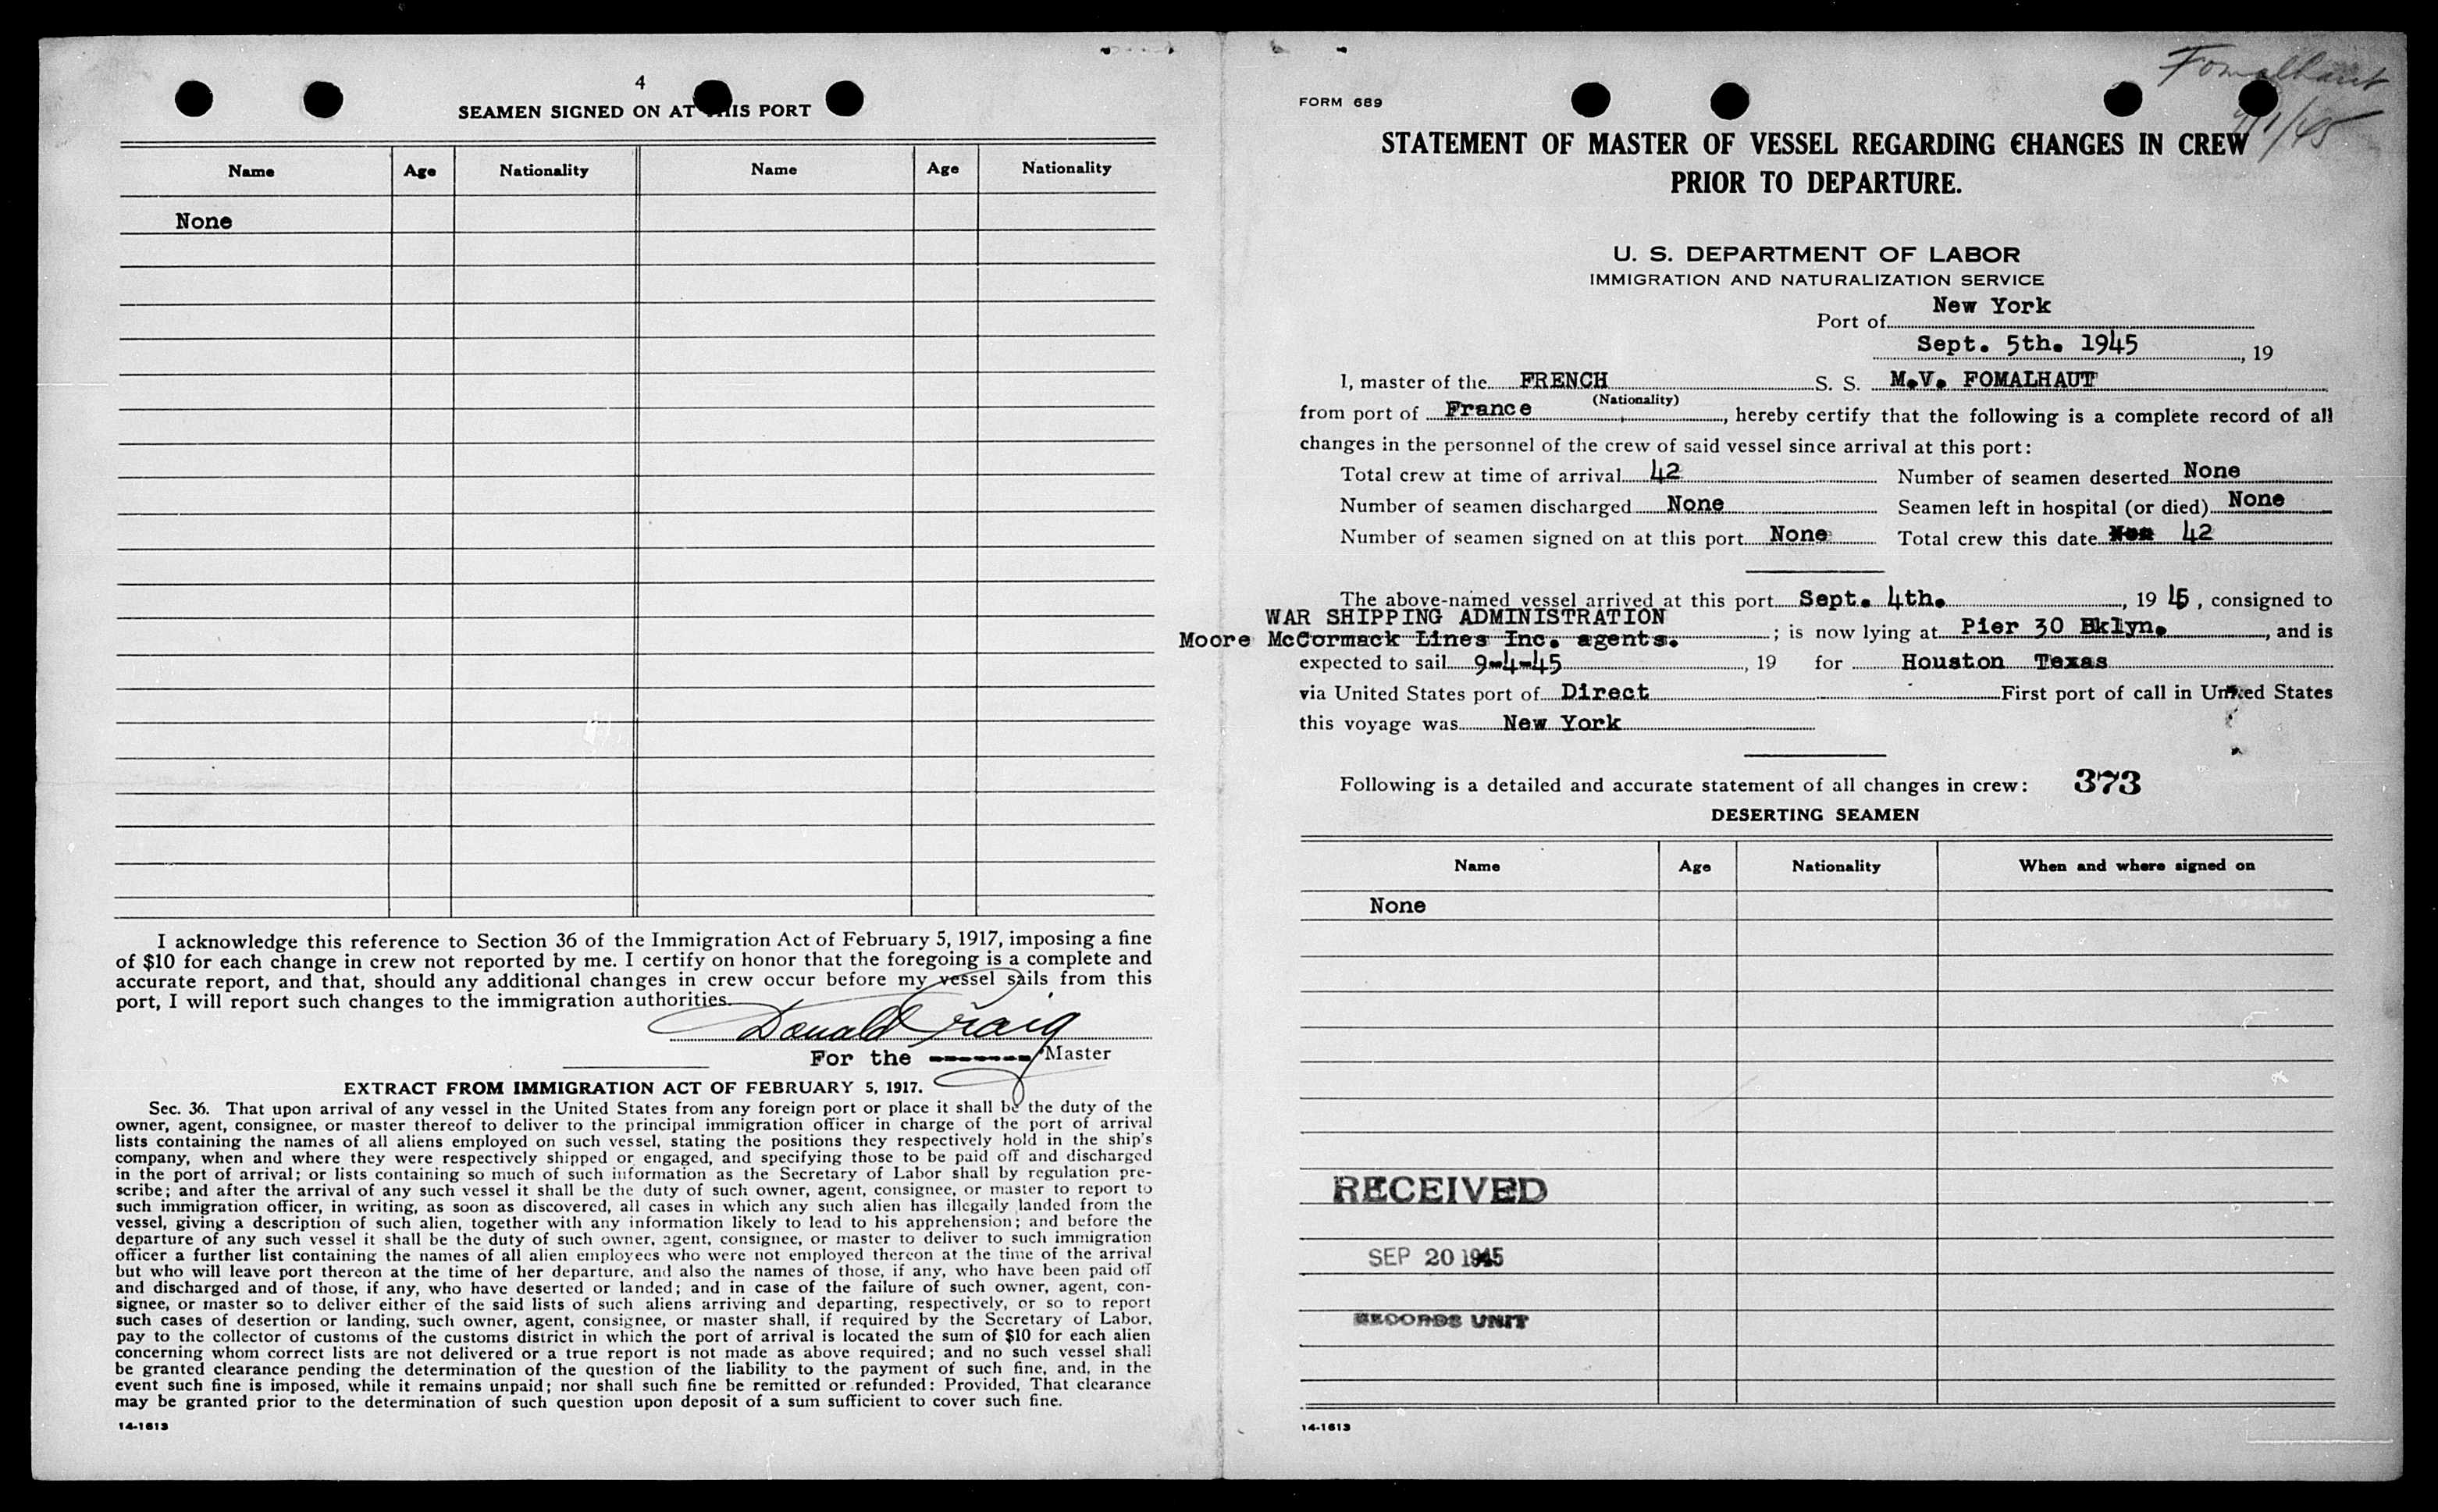 4
SEAMEN SIGNED ON AT THIS PORT
Name Age Nationality Name Age Nationality
None
I acknowledge this reference to Section 36 of the Immigration Act of February 5, 1917, imposing a fine
of $10 for each change in crew not reported by me. I certify on honor that the foregoing is a complete and
accurate report, and that, should any additional changes in crew occur before my vessel sails from this
port, I will report such changes to the immigration authorities.
Donald Craig
For the ------- Master
EXTRACT FROM IMMIGRATION ACT OF FEBRUARY 5, 1917.
Sec. 36. That upon arrival of any vessel in the United States from any foreign port or place it shall be the duty of the
owner, agent, consignee, or master thereof to deliver to the principal immigration officer in charge of the port of arrival
lists containing the names of all aliens employed on such vessel, stating the positions they respectively hold in the ship's
company, when and where they were respectively shipped or engaged, and specifying those to be paid off and discharged
in the port of arrival; or lists containing so much of such information as the Secretary of Labor shall by regulation pre-
scribe; and after the arrival of any such vessel it shall be the duty of such owner, agent, consignee, or master to report to
such immigration officer, in writing, as soon as discovered, all cases in which any such alien has illegally landed from the
vessel, giving a description of such alien, together with any information likely to lead to his apprehension; and before the
departure of any such vessel it shall be the duty of such owner, agent, consignee, or master to deliver to such immigration
officer a further list containing the names of all alien employees who were not employed thereon at the time of the arrival
but who will leave port thereon at the time of her departure, and also the names of those, if any, who have been paid off
and discharged and of those, if any, who have deserted or landed; and in case of the failure of such owner, agent, con-
signee, or master so to deliver either of the said lists of such aliens arriving and departing, respectively, or so to report
such cases of desertion or landing, such owner, agent, consignee, or master shall, if required by the Secretary of Labor,
pay to the collector of customs of the customs district in which the port of arrival is located the sum of $10 for each alien
concerning whom correct lists are not delivered or a true report is not made as above required; and no such vessel shall
be granted clearance pending the determination of the question of the liability to the payment of such fine, and, in the
event such fine is imposed, while it remains unpaid; nor shall such fine be remitted or refunded: Provided, That clearance
may be granted prior to the determination of such question upon deposit of a sum sufficient to cover such fine.
14-1613
Fomalhaut
9/1/45
FORM 689
STATEMENT OF MASTER OF VESSEL REGARDING CHANGES IN CREW
PRIOR TO DEPARTURE.
U. S. DEPARTMENT OF LABOR
IMMIGRATION AND NATURALIZATION SERVICE
Port of New York
Sept. 5th. 1945, 19
I, master of the FRENCH S. S. M.V. FOMALHAUT
(Nationality)
from port of France, hereby certify that the following is a complete record of all
changes in the personnel of the crew of said vessel since arrival at this port:
Total crew at time of arrival 42 Number of seamen deserted None
Number of seamen discharged None Seamen left in hospital (or died) None
Number of seamen signed on at this port None Total crew this date 42
The above-named vessel arrived at this port Sept. 4th., 19 45, consigned to
WAR SHIPPING ADMINISTRATION
Moore McCormack Lines Inc. agents. ; is now lying at Pier 30 Bklyn., and is
expected to sail 9-4-45, 19 for Houston Texas
via United States port of Direct First port of call in United States
this voyage was New York
Following is a detailed and accurate statement of all changes in crew: 373
DESERTING SEAMEN
Name Age Nationality When and where signed on
None
RECEIVED
SEP 20 1945
RECORDS UNIT
14-1613